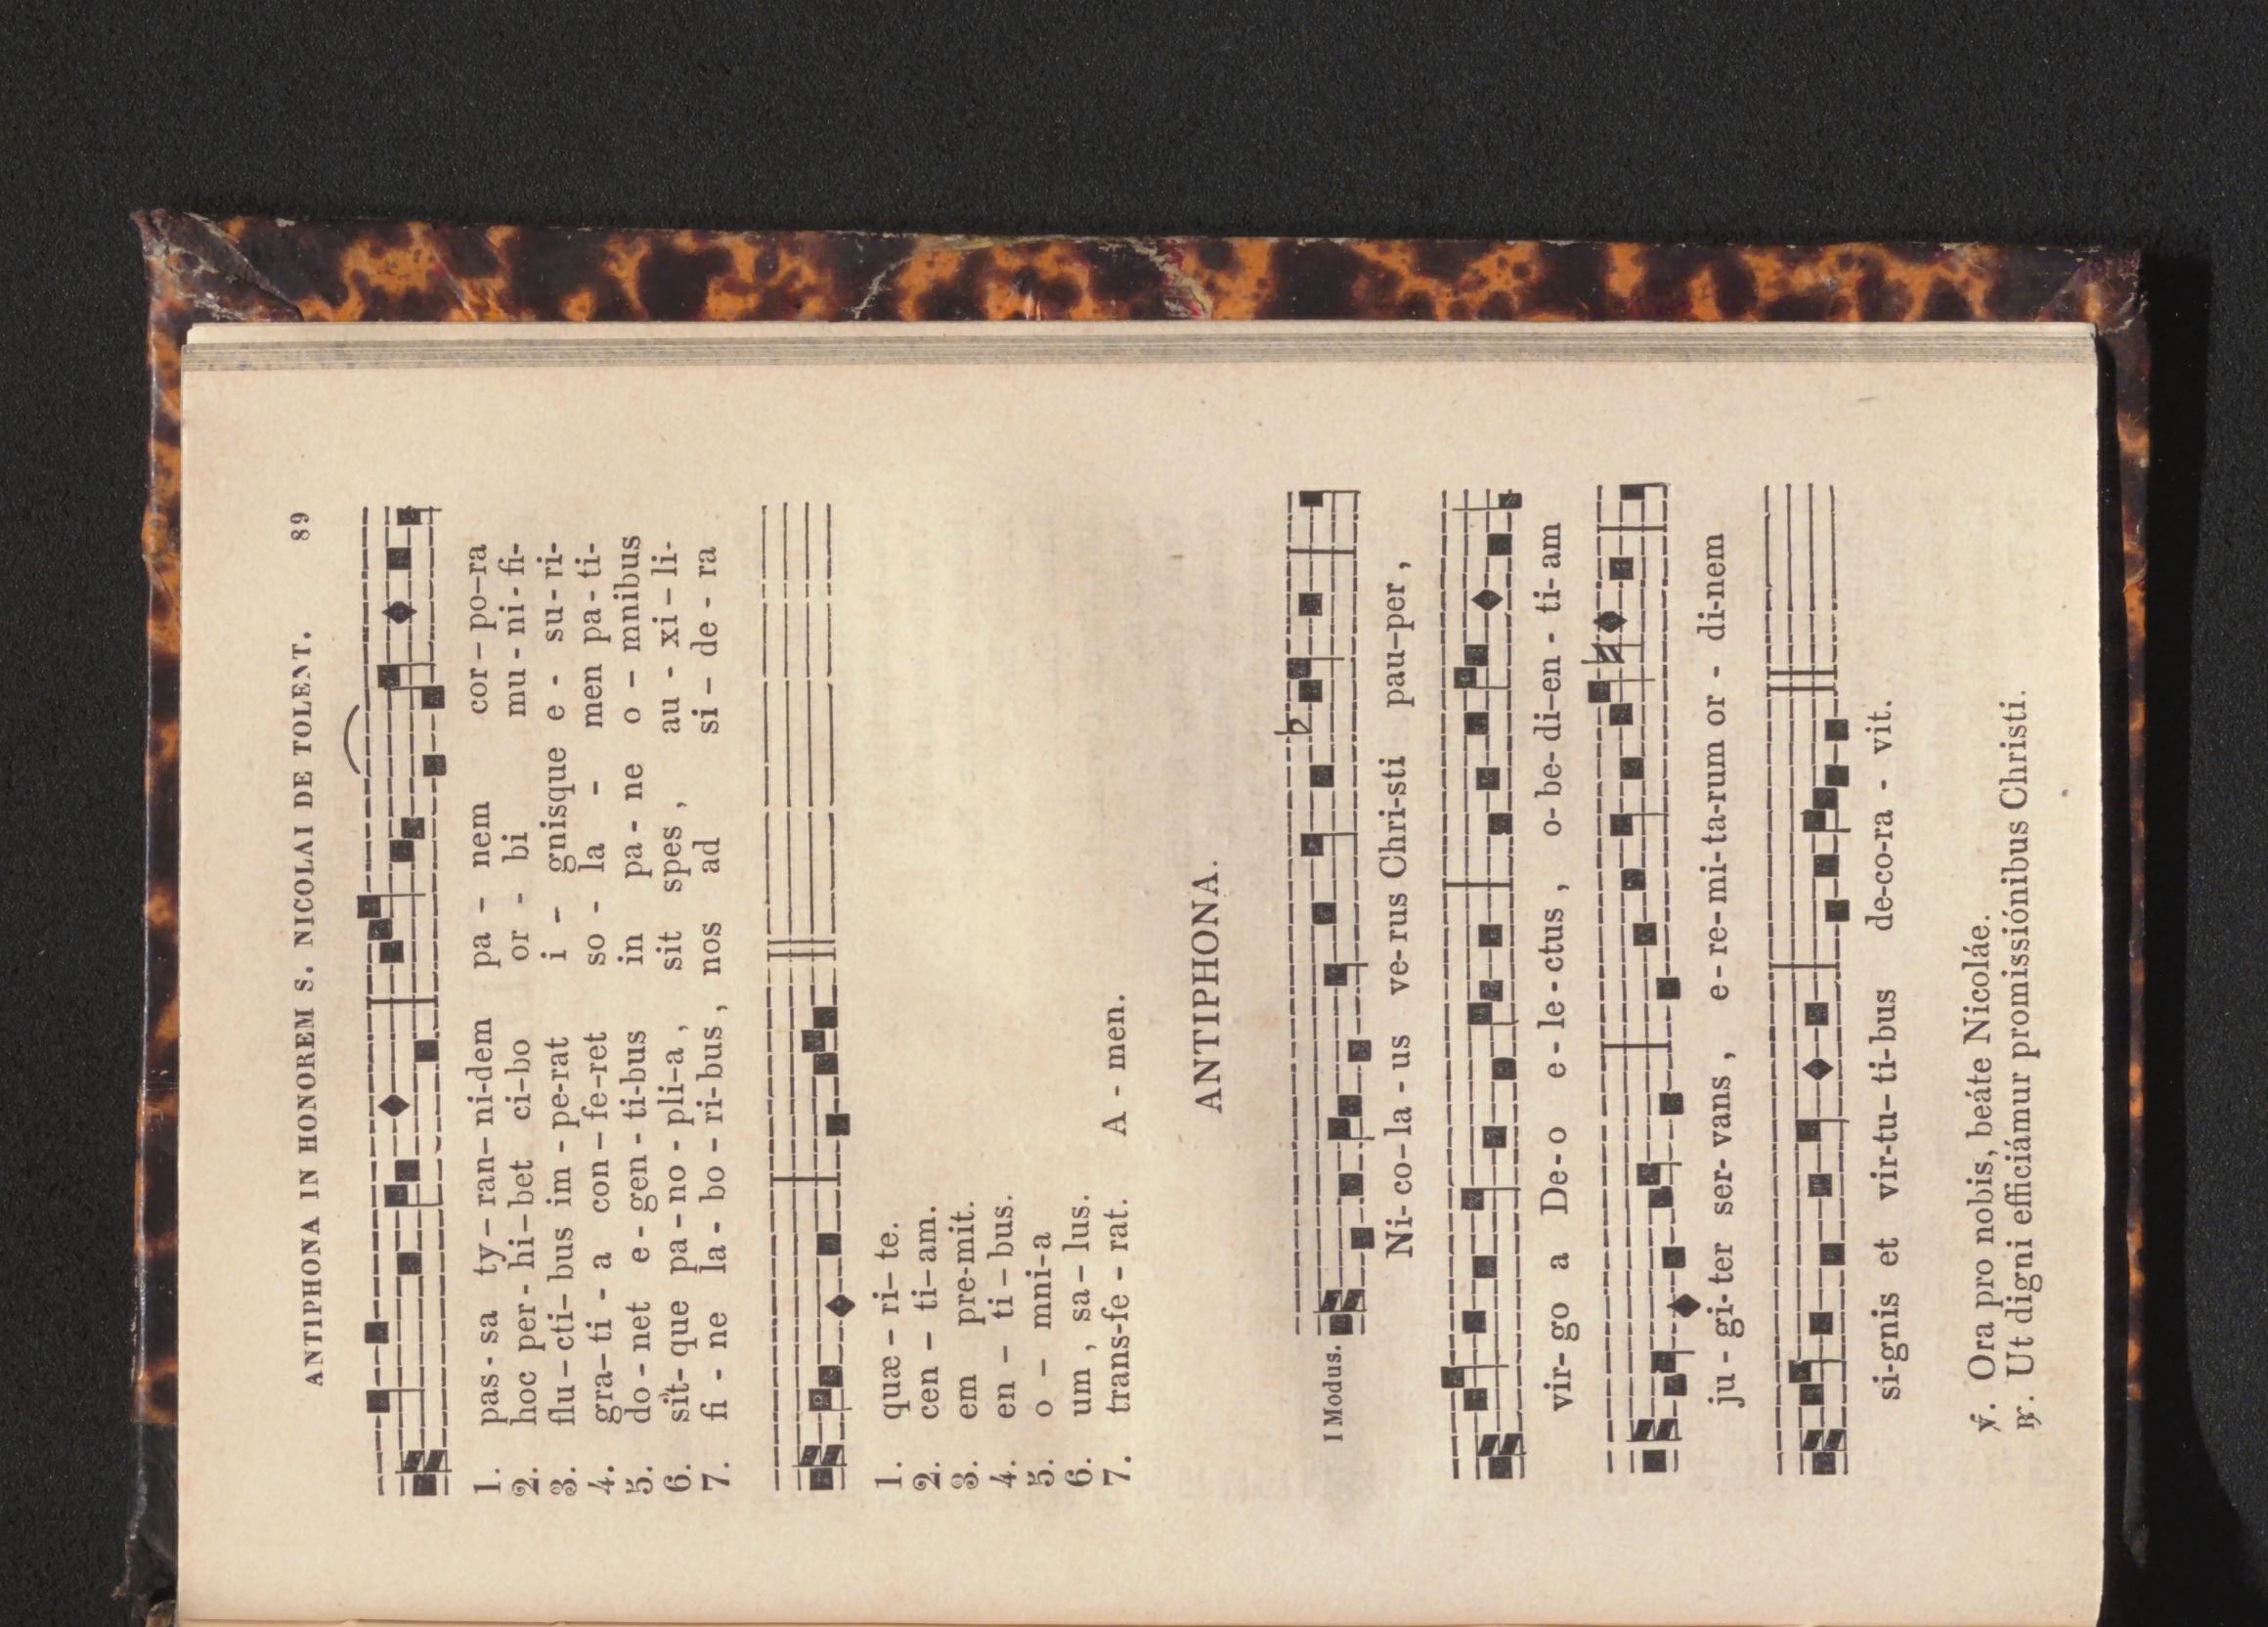 ANTIPHONA IN HONOREM S. NICOLAI DE TOLENT. 89
1. pas-sa ty-ran-ni-dem pa - nem cor-po-ra
2. hoc per-hi-bet ci-bo or - bi mu-ni-fi-
3. flu-cti-bus im-pe-rat i - gnisque e - su-ri-
4. gra-ti - a con-fe-ret so - la - men pa-ti-
5. do-net e-gen-ti-bus in pa-ne o - mnibus
6. sit-que pa-no-pli-a, sit spes, au - xi-li-
7. fi - ne la-bo-ri-bus, nos ad si-de-ra
1. quæ-ri-te.
2. cen-ti-am.
3. em pre-mit.
4. en-ti-bus.
5. o - mni-a
6. um, sa-lus.
7. trans-fe-rat. A - men.
ANTIPHONA.
I Modus.
Ni-co-la-us ve-rus Chri-sti pau-per,
vir-go a De-o e-le-ctus, o-be-di-en-ti-am
ju-gi-ter ser-vans, e-re-mi-ta-rum or-di-nem
si-gnis et vir-tu-ti-bus de-co-ra-vit.
℣. Ora pro nobis, beáte Nicoláe.
℟. Ut digni efficiámur promissiónibus Christi.